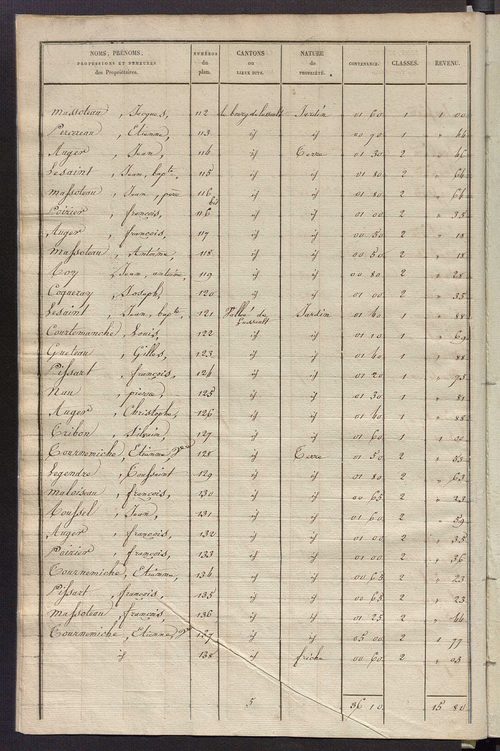 NOMS, PRÉNOMS, PROFESSIONS ET DEMEURES des Propriétaires. NUMÉROS du plan. CANTONS ou LIEUX DITS. NATURE de PROPRIÉTÉ. CONTENANCE. CLASSES. REVENU.
Massoteau, Jacques, 112 le bourg de Jardin 01 60 1 1 00
Percereau, Etienne, 113 id id 00 70 1 " 44
Auger, Jean, 114 id Terre 01 30 2 " 46
Lesaint, Jean, bapte, 115 id id 01 80 2 " 64
Massoteau, Jean, père 116 id id 01 80 2 " 64
Poirier, françois, 116 bis id id 01 00 2 " 35
Auger, françois, 117 id id 00 50 2 " 18
Massoteau, Antoine, 118 id id 00 50 2 " 18
Jean, antoine, 119 id id 00 80 2 " 28
Joseph, 120 id id 01 00 2 " 35
Lesaint, Jean, bapte, 121 Vallée de Jardin 01 60 1 " 88
Courtemanche, Louis, 122 id id 01 10 1 " 69
Gueteau, Gilles, 123 id id 01 40 1 " 88
Pissart, françois, 124 id id 01 20 1 " 75
Nau, pierre, 125 id id 01 30 1 " 81
Auger, Christophe, 126 id id 01 40 1 " 88
Tribon, Silvain, 127 id id 01 60 1 1 00
Tournemiche, Etienne, 128 id Terre 01 50 2 " 53
Legendre, Toussaint 129 id id 01 80 2 " 63
Maloiseau, françois, 130 id id 00 65 2 " 23
Roussel, Jean, 131 id id 01 60 2 " 59
Auger, françois, 132 id id 01 00 2 " 35
Poirier, françois, 133 id id 01 00 2 " 36
Tournemiche, Etienne, 134 id id 00 65 2 " 23
Pissart, françois, 135 id id 00 65 2 " 23
Massoteau, françois, 136 id id 01 25 2 " 44
Tournemiche, Etienne, 137 id id 05 00 2 1 77
id 138 id friche 00 60 2 " 03
5 36 10 15 80